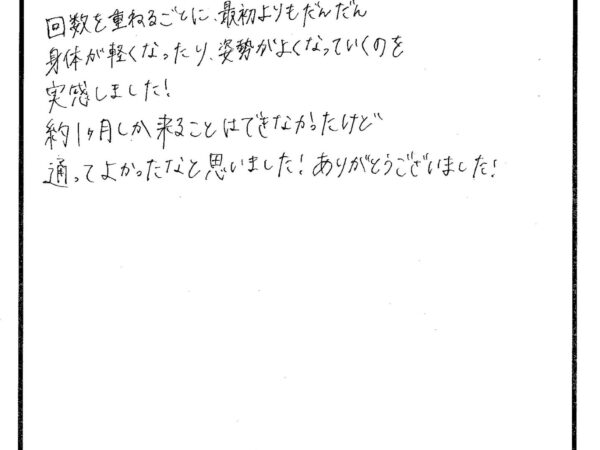 回数を重ねるごとに、最初よりもだんだん
身体が軽くなったり、姿勢がよくなっていくのを
実感しました!
約1ヶ月しか来ることはできなかったけど
通ってよかったなと思いました!ありがとうございました!